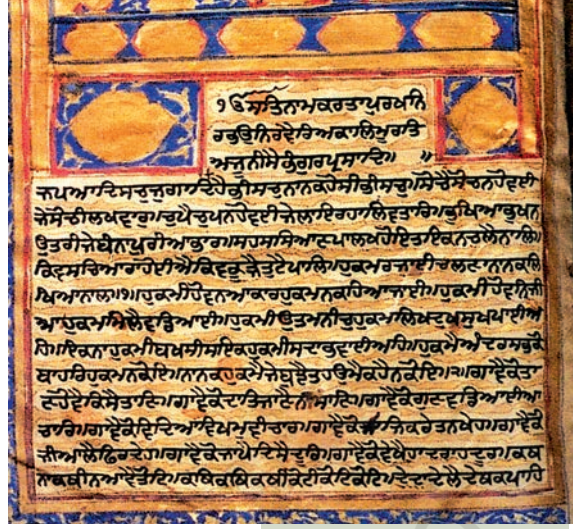 ੴਸਤਿਨਾਮਕਰਤਾਪੁਰਖਨਿ
ਰਭਉਨਿਰਵੈਰਿਅਕਾਲਿਮੂਰਤਿ
ਅਜੂਨੀਸੈਭੰਗੁਰਪ੍ਰਸਾਦਿ॥ ॥
ਜਪਆਦਿਸਚੁਜੁਗਾਦਿਹੈਭੀਸਚੁਨਾਨਕਹੋਸੀਭੀਸਚੁ।ਸੋਚੈਸੋਚਨਹੋਵਈ
ਜੇਸੋਚੀਲਖਵਾਰ।ਚੁਪੈਚੁਪਨਹੋਵਈਜੇਲਾਇਰਹਾਲਿਵਤਾਰ।ਭੁਖਿਆਭੁਖਨ
ਉਤਰੀਜੇਬੰਨਾਪੁਰੀਆਭਾਰ।ਸਹਸਸਿਆਣਪਾਲਖਹੋਇਤਾਇਕਨਚਲੈਨਾਲਿ।
ਕਿਵਸਚਿਆਰਾਹੋਈਐਕਿਵਕੂੜੈਤੁਟੈਪਾਲਿ।ਹੁਕਮਰਜਾਈਚਲਣਾਨਾਨਕਲਿ
ਖਿਆਨਾਲ॥੧॥ਹੁਕਮੀਹੋਵਨਆਕਾਰਹੁਕਮਨਕਹਿਆਜਾਈ।ਹੁਕਮੀਹੋਵਨਿਜੀ
ਆਹੁਕਮਮਿਲੈਵਡਿਆਈ।ਹੁਕਮੀਉਤਮਨੀਚੁਹੁਕਮਲਿਖਦੁਖਸੁਖਪਾਈਅ
ਹਿ।ਇਕਨਾਹੁਕਮੀਬਖਸੀਸਇਕਹੁਕਮੀਸਦਾਭਵਾਈਅਹਿ।ਹੁਕਮੈਅੰਦਰਸਭਕੋ
ਬਾਹਰਿਹੁਕਮਨਕੋਇ।ਨਾਨਕਹੁਕਮੈਜੇਬੁਝੈਤਹਉਮੈਕਹੈਨਕੋਇ।੨।ਗਾਵੈਕੋਤਾ
ਣੁਹੋਵੈਕਿਸੈਤਾਣ।ਗਾਵੈਕੋਦਾਤਿਜਾਣੈਨੀਸਾਣ।ਗਾਵੈਕੋਗੁਣਵਡਿਆਈਆ
ਚਾਰ।ਗਾਵੈਕੋਵਿਦਿਆਵਿਖਮੁਵੀਚਾਰ।ਗਾਵੈਕੋਸਾਜਿਕਰੇਤਨਖੇਹ।ਗਾਵੈਕੋ
ਜੀਆਲੈਫਿਰਦੇਹ।ਗਾਵੈਕੋਜਾਪੈਦਿਸੈਦੂਰਿ।ਗਾਵੈਕੋਵੇਖੈਹਾਦਰਾਹਦੂਰ।ਕਥ
ਨਾਕਥੀਨਆਵੈਤੋਟਿ।ਕਥਿਕਥਿਕਥੀਕੋਟੀਕੋਟਿਕੋਟਿ।ਦੇਦਾਦੇਲੈਦੇਥਕਪਾਹਿ